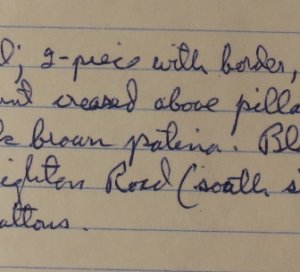 l; 2-piece with border,
nt creased above pilla
k brown patina. Bl
ighton Road (south s
attons.